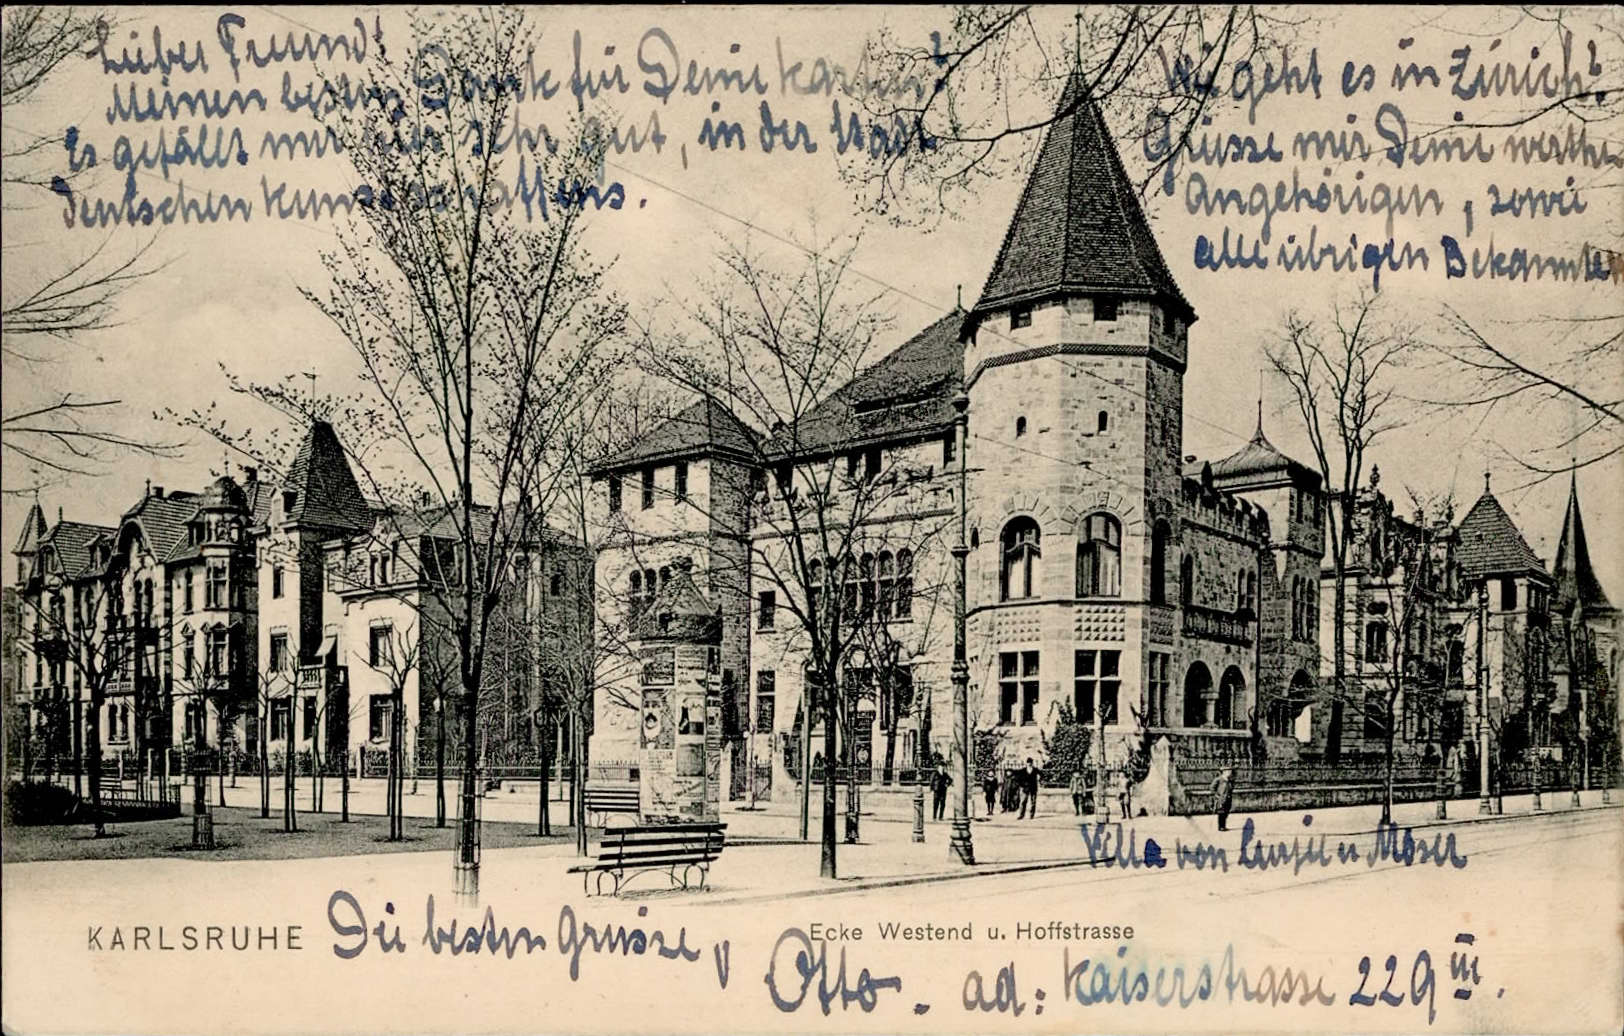 Lieber Freund!
Meinen besten Dank für Deine Karten!
Es gefällt mir hier sehr gut, in der Stadt
deutschen Kunstschaffens.
Wie geht es in Zürich?
Grüsse mir Deine werthen
Angehörigen, sowie
alle übrigen Bekannte
Villa von Curjel u Moser
KARLSRUHE
Ecke Westend u. Hoffstrasse
Die besten Grüsse v
Otto. ad: Kaiserstrasse 229 III.